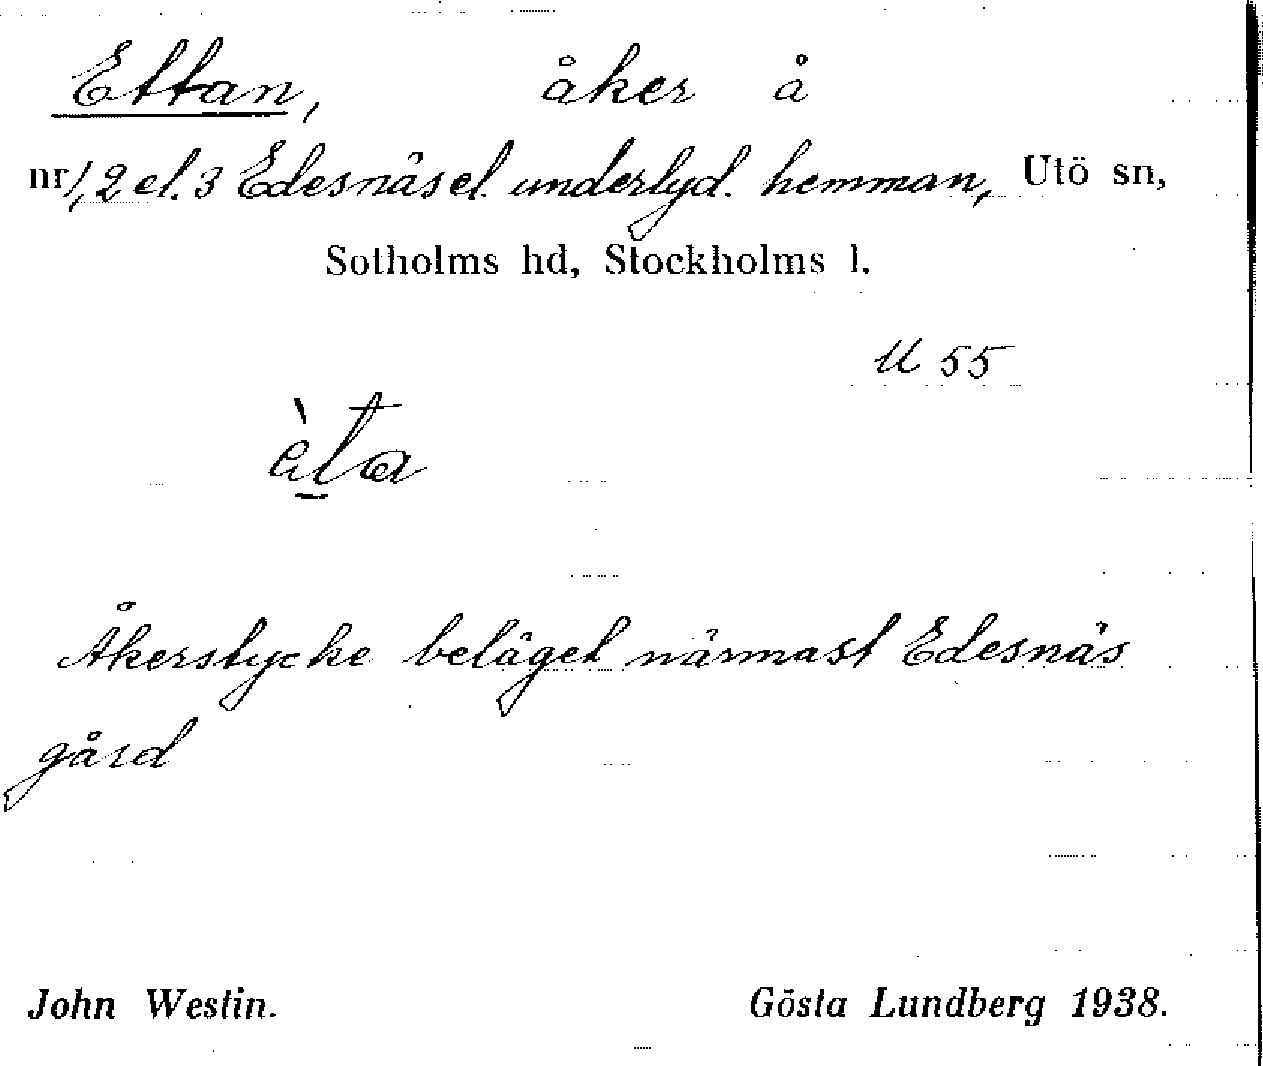 Ettan, åker å
nr 1, 2 el. 3 Edesnäs el. underlyd. hemman, Utö sn,
Sotholms hd, Stockholms l.
U 55
èt̠a
Åkerstycke beläget närmast Edesnäs
gård
John Westin. Gösta Lundberg 1938.